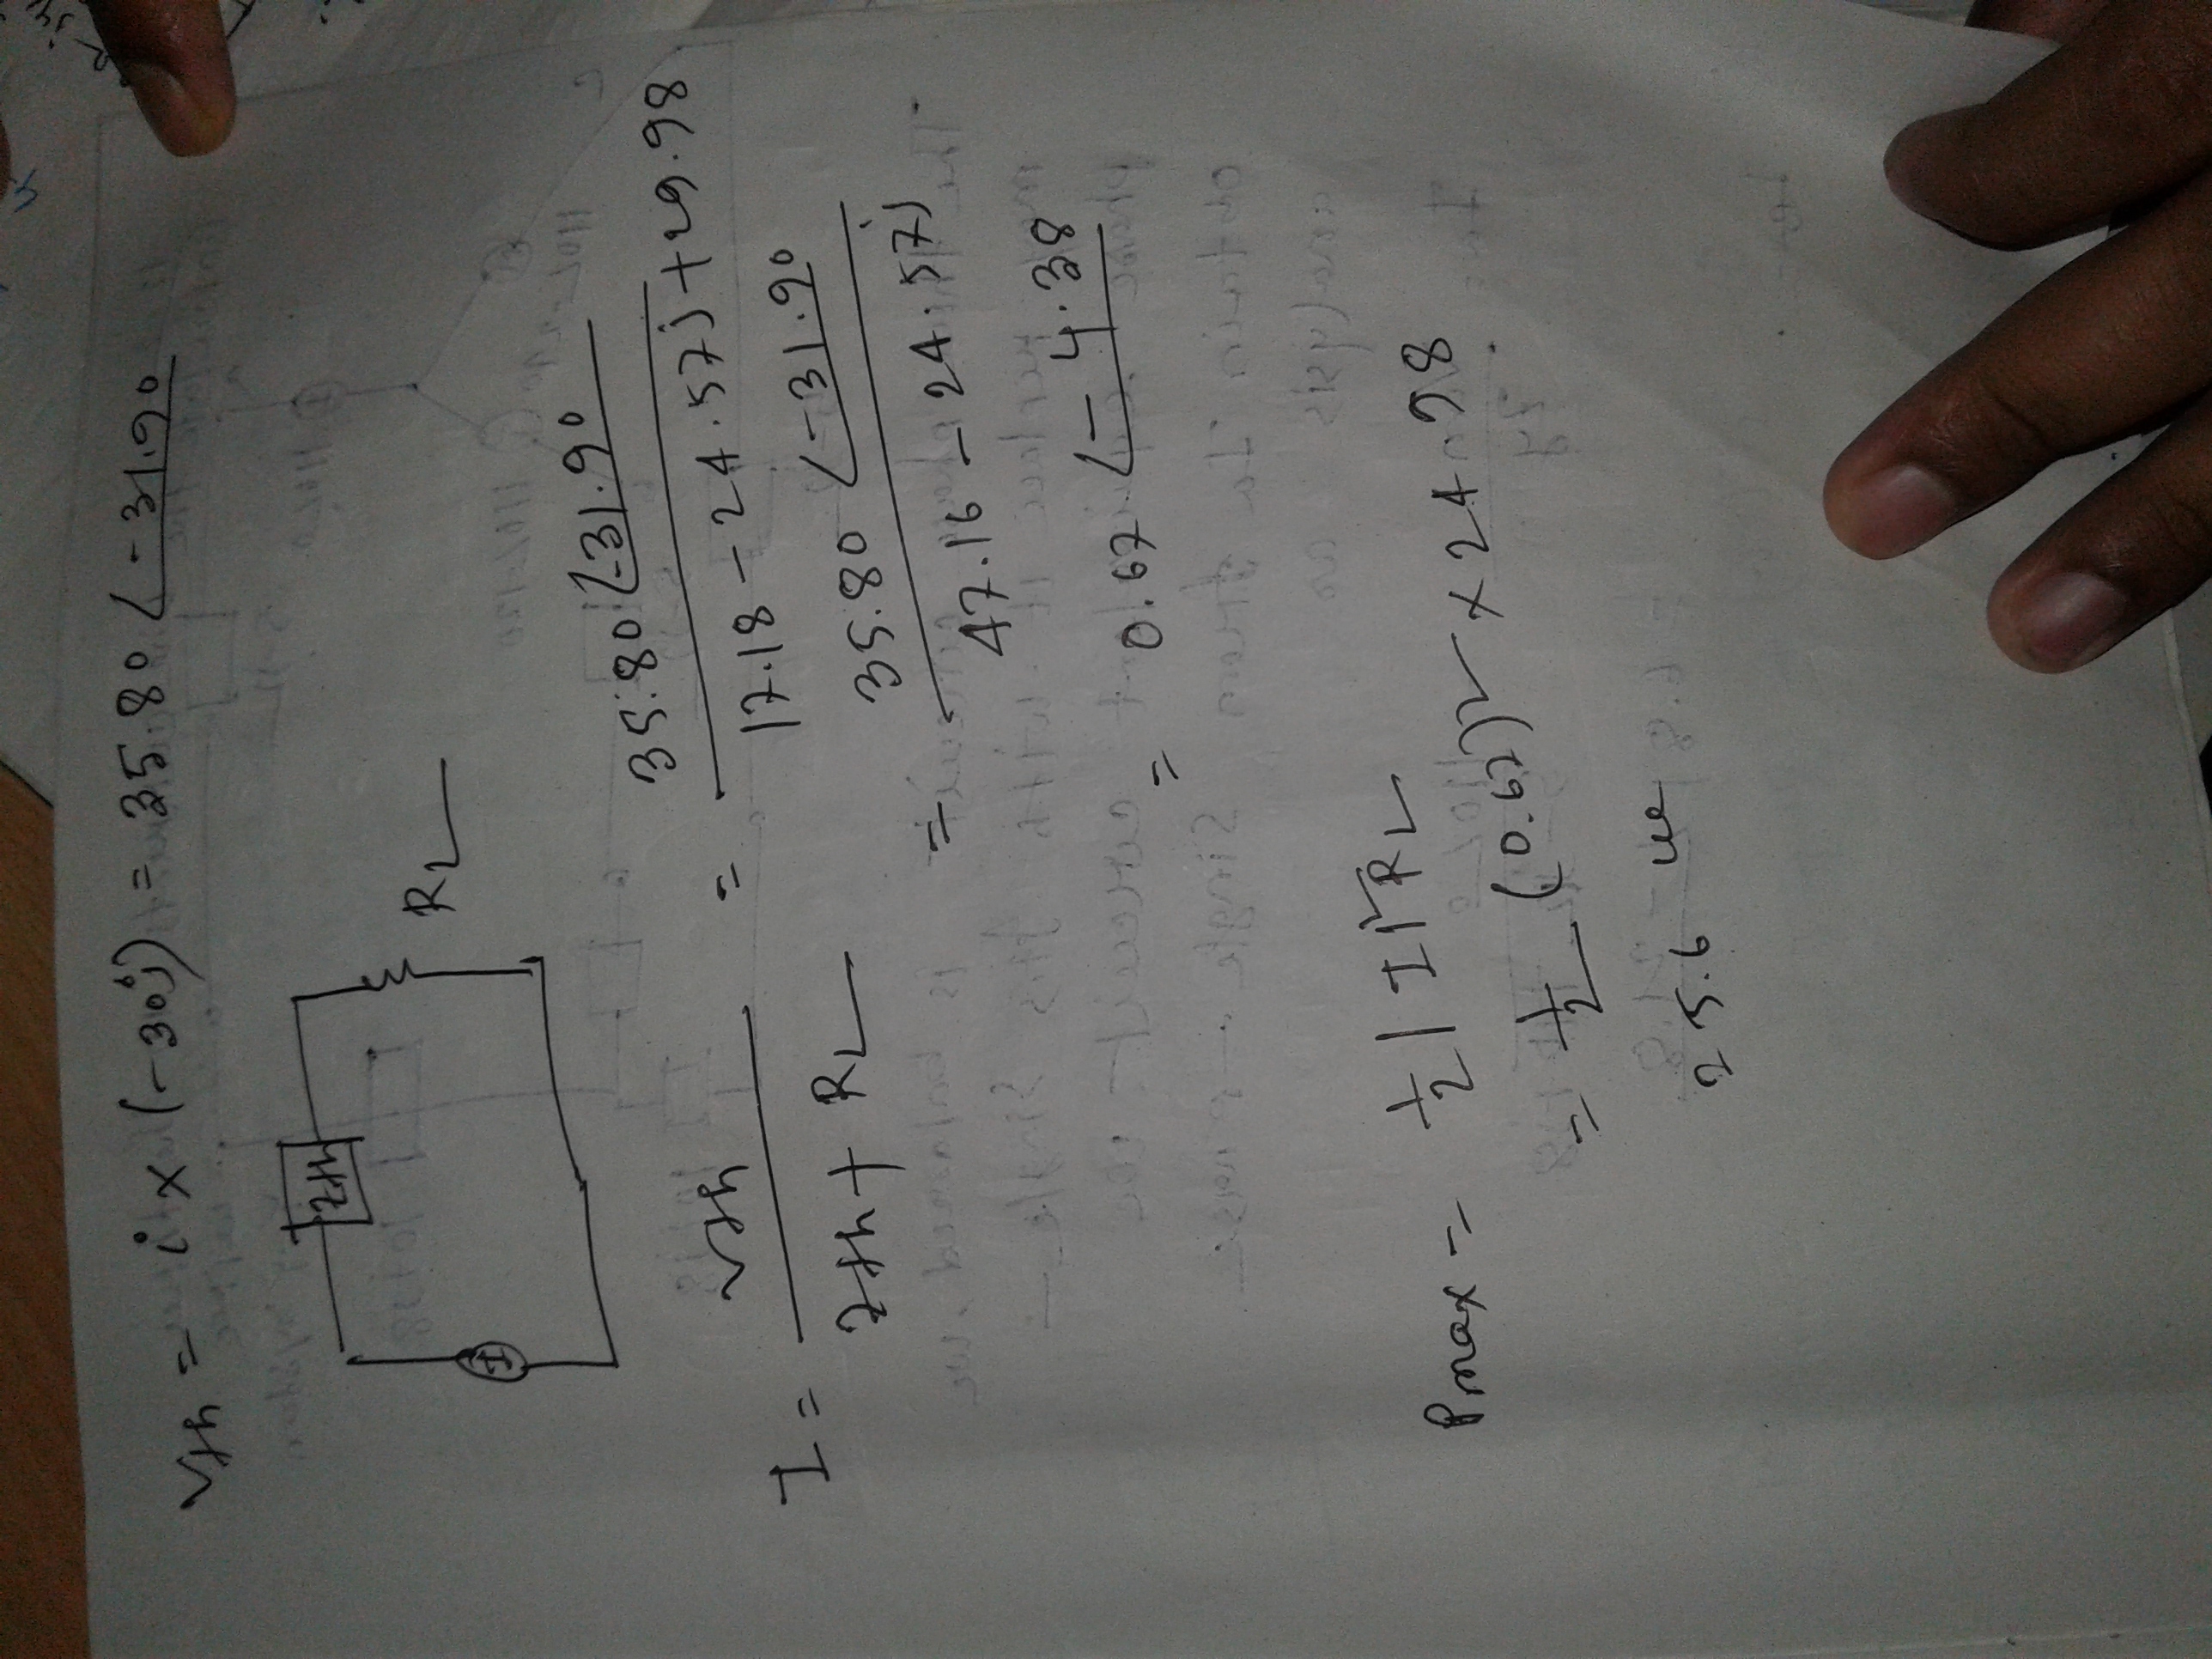 Vth = i × (-30j) = 35.80 ∠-31.90
Zth
RL
I = Vth / Zth + RL = 35.80 ∠-31.90 / 17.18 - 24.57j + 29.98
= 35.80 ∠-31.90 / 47.16 - 24.57j
= 0.67 ∠-4.38
Pmax = 1/2 |I|² RL
= 1/2 (0.67)² × 24.98
25.6